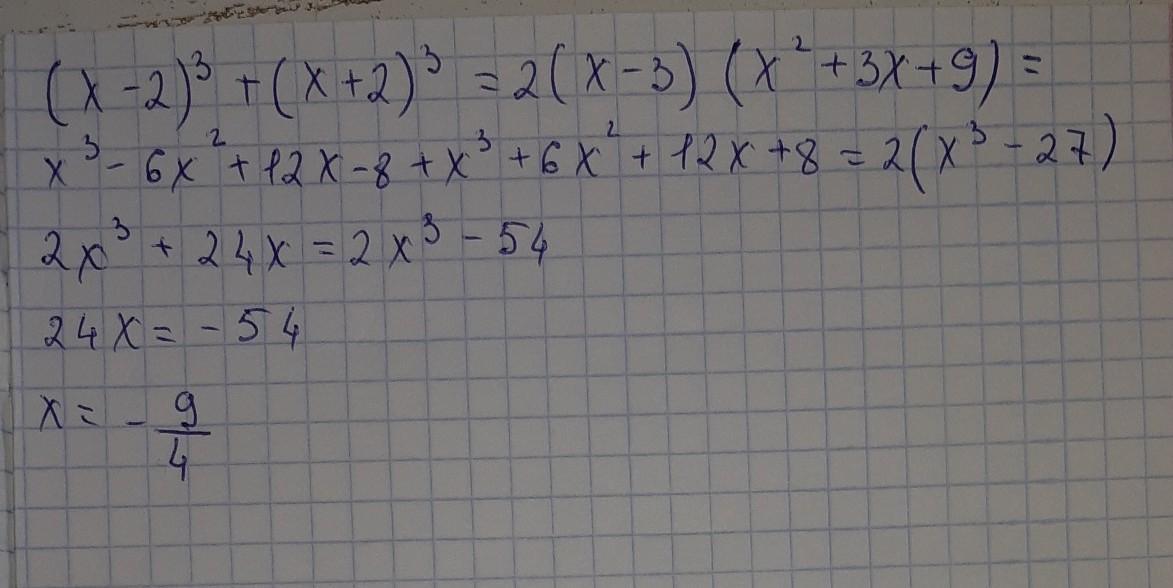 (x-2)³ + (x+2)³ = 2(x-3) (x² + 3x + 9) =
x³ - 6x² + 12x - 8 + x³ + 6x² + 12x + 8 = 2(x³ - 27)
2x³ + 24x = 2x³ - 54
24x = - 54
x = - 9/4